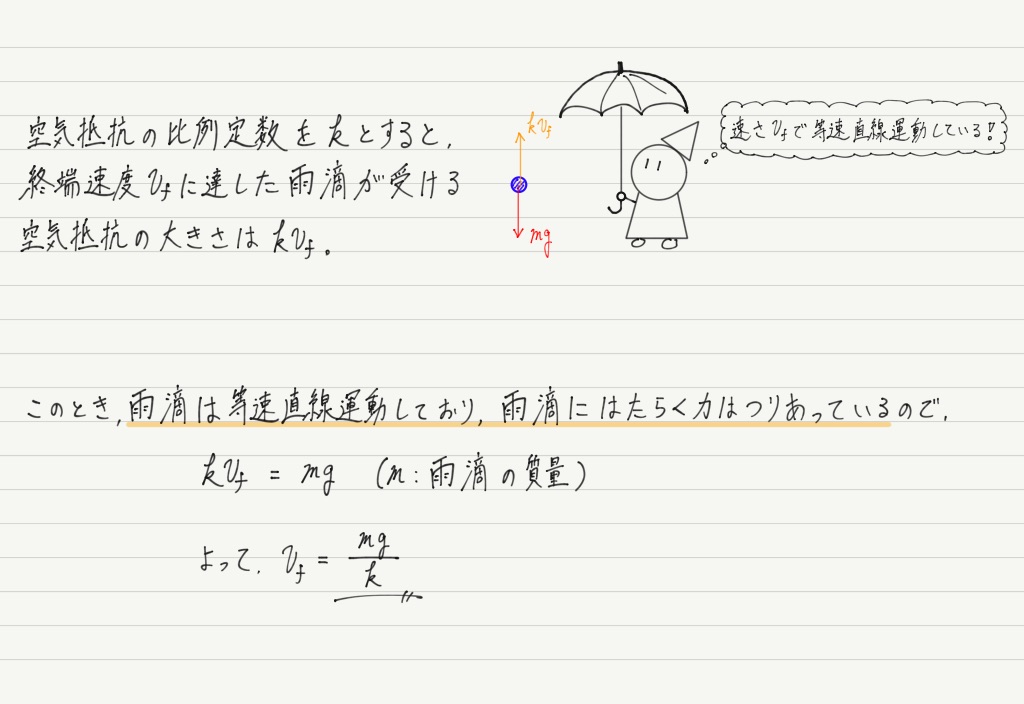 空気抵抗の比例定数をkとすると,
終端速度 v_f に達した雨滴が受ける
空気抵抗の大きさは kv_f。
kv_f
mg
速さ v_f で等速直線運動している!
このとき,雨滴は等速直線運動しており,雨滴にはたらく力はつりあっているので,
kv_f = mg (m:雨滴の質量)
よって, v_f = mg/k